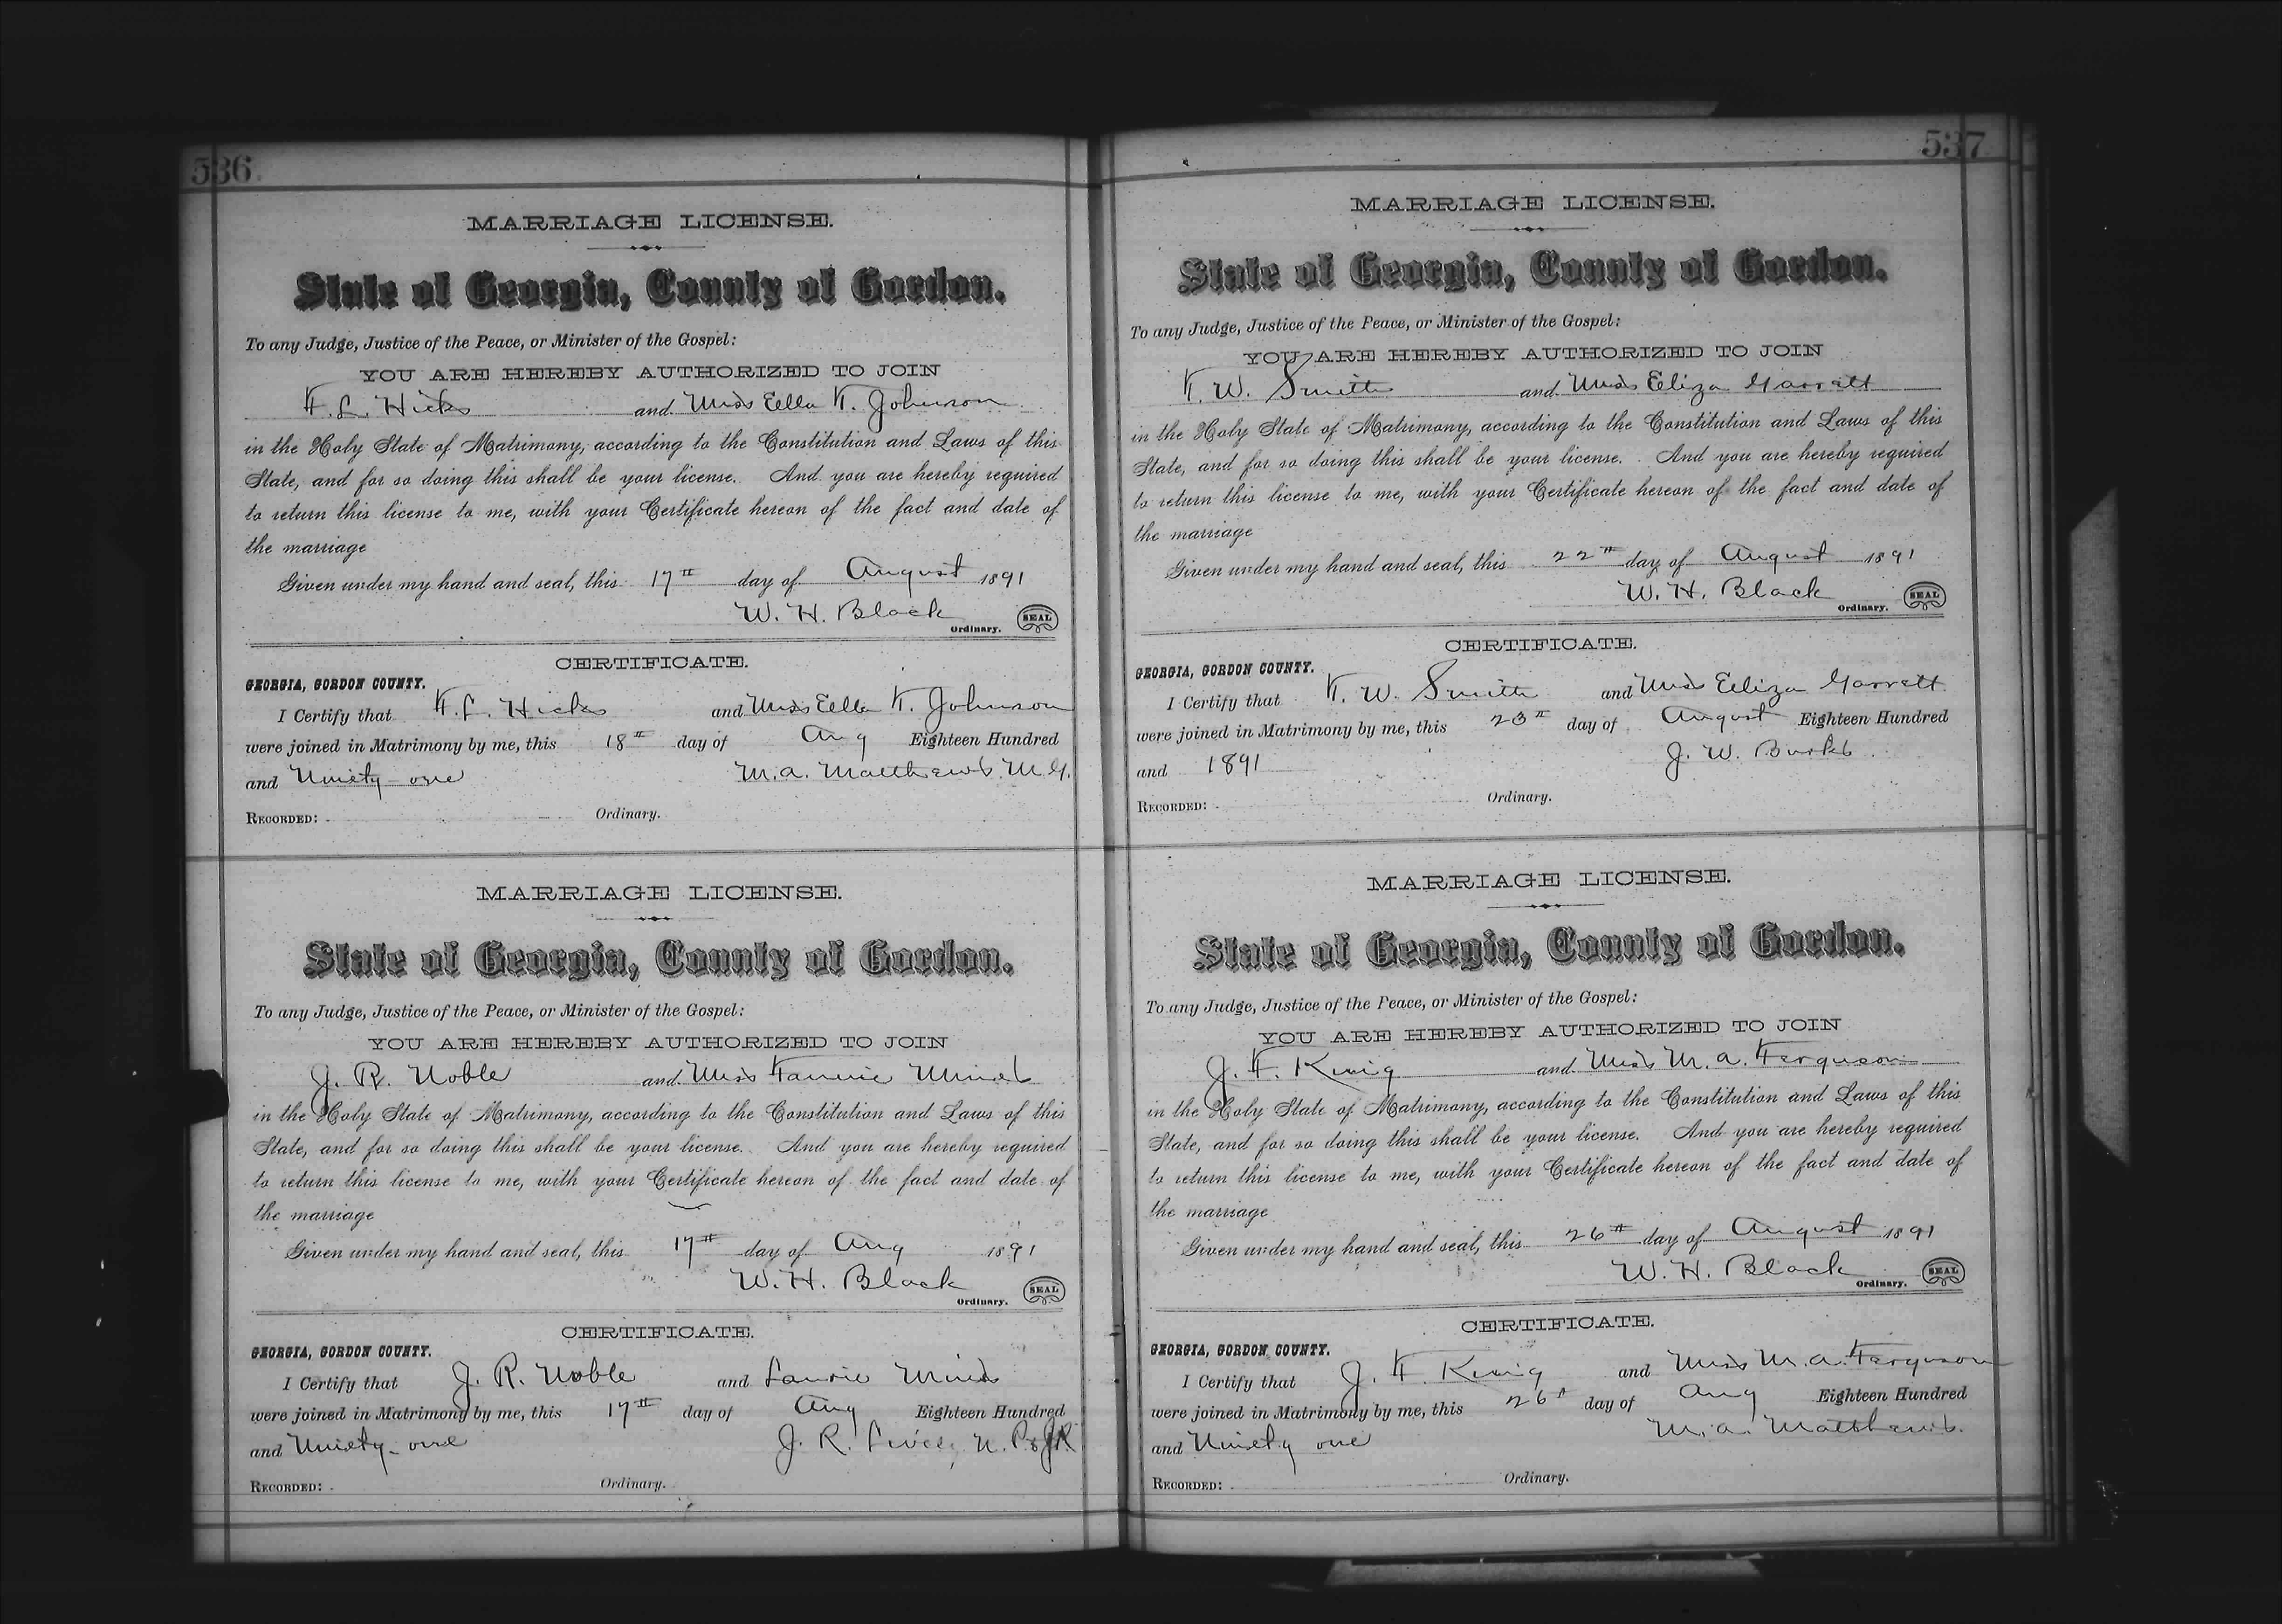 536
MARRIAGE LICENSE.
State of Georgia, County of Gordon.
To any Judge, Justice of the Peace, or Minister of the Gospel:
YOU ARE HEREBY AUTHORIZED TO JOIN
F. L. Hicks and Miss Ella F. Johnson
in the Holy State of Matrimony, according to the Constitution and Laws of this
State, and for so doing this shall be your license. And you are hereby required
to return this license to me, with your Certificate hereon of the fact and date of
the marriage
Given under my hand and seal, this 17th day of August 1891
W. H. Black
Ordinary. SEAL
CERTIFICATE.
GEORGIA, GORDON COUNTY.
I Certify that F. L. Hicks and Miss Ella F. Johnson
were joined in Matrimony by me, this 18th day of Aug Eighteen Hundred
and Ninety-one M. A. Matthews M.G.
RECORDED: Ordinary.
MARRIAGE LICENSE.
State of Georgia, County of Gordon.
To any Judge, Justice of the Peace, or Minister of the Gospel:
YOU ARE HEREBY AUTHORIZED TO JOIN
J. R. Noble and Miss Fannie
in the Holy State of Matrimony, according to the Constitution and Laws of this
State, and for so doing this shall be your license. And you are hereby required
to return this license to me, with your Certificate hereon of the fact and date of
the marriage
Given under my hand and seal, this 17th day of Aug 1891
W. H. Black
Ordinary. SEAL
CERTIFICATE.
GEORGIA, GORDON COUNTY.
I Certify that J. R. Noble and
were joined in Matrimony by me, this 17th day of Aug Eighteen Hundred
and Ninety-one J. R.
RECORDED: Ordinary.
537
MARRIAGE LICENSE.
State of Georgia, County of Gordon.
To any Judge, Justice of the Peace, or Minister of the Gospel:
YOU ARE HEREBY AUTHORIZED TO JOIN
F. W. Smith and Miss Eliza Garrett
in the Holy State of Matrimony, according to the Constitution and Laws of this
State, and for so doing this shall be your license. And you are hereby required
to return this license to me, with your Certificate hereon of the fact and date of
the marriage
Given under my hand and seal, this 22th day of August 1891
W. H. Black
Ordinary. SEAL
CERTIFICATE.
GEORGIA, GORDON COUNTY.
I Certify that F. W. Smith and Miss Eliza Garrett
were joined in Matrimony by me, this 23th day of August Eighteen Hundred
and 1891 J. W. Burks
RECORDED: Ordinary.
MARRIAGE LICENSE.
State of Georgia, County of Gordon.
To any Judge, Justice of the Peace, or Minister of the Gospel:
YOU ARE HEREBY AUTHORIZED TO JOIN
J. F. King and Miss M. A. Ferguson
in the Holy State of Matrimony, according to the Constitution and Laws of this
State, and for so doing this shall be your license. And you are hereby required
to return this license to me, with your Certificate hereon of the fact and date of
the marriage
Given under my hand and seal, this 26th day of August 1891
W. H. Black
Ordinary. SEAL
CERTIFICATE.
GEORGIA, GORDON COUNTY.
I Certify that J. F. King and Miss M. A. Ferguson
were joined in Matrimony by me, this 26th day of Aug Eighteen Hundred
and Ninety one M. A. Matthews.
RECORDED: Ordinary.